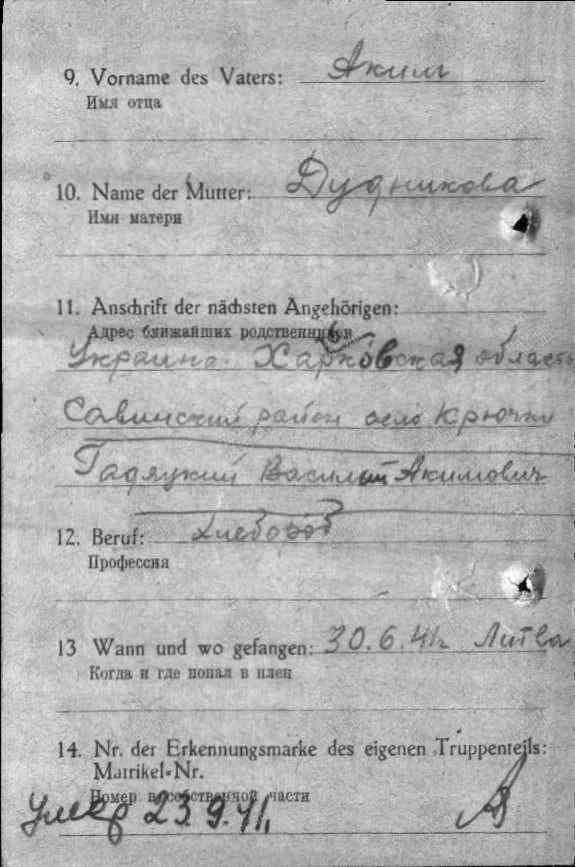 9. Vorname des Vaters: Аким
Имя отца
10. Name der Mutter: Дудникова
Имя матери
11. Anschrift der nächsten Angehörigen:
Адрес ближайших родственников
Украина. Харковская область
Савинский район село Крючки
Гадяцкий Василий Акимович
12. Beruf: Хлебороб
Профессия
13 Wann und wo gefangen: 30.6.41 Литва
Когда и где попал в плен
14. Nr. der Erkennungsmarke des eigenen Truppenteils:
Matrikel-Nr.
Номер в собственной части
умер 23.9.41.